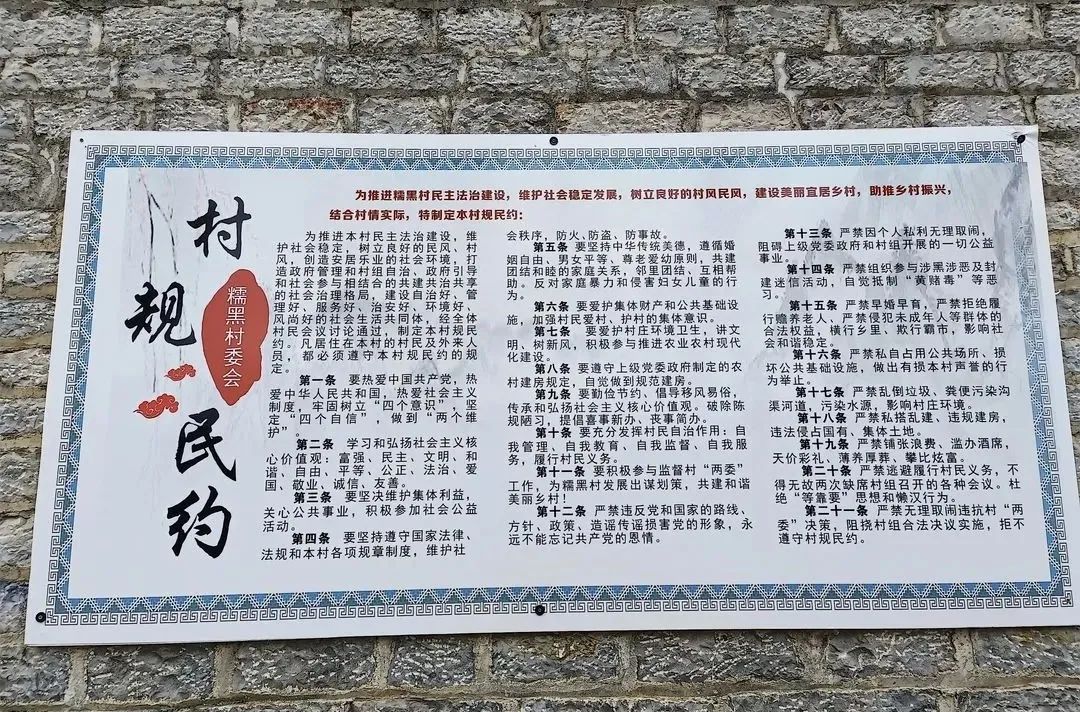 村规民约
糯黑村委会
为推进糯黑村民主法治建设，维护社会稳定发展，树立良好的村风民风，建设美丽宜居乡村，助推乡村振兴，
结合村情实际，特制定本村规民约：
为推进本村民主法治建设，维
护社会稳定，树立良好的民风、村
风，创造安居乐业的社会环境，打
造政府管理和村组自治、政府引导
和社会参与相结合的共建共治共享
的社会治理格局，建设自治好、管
理好、服务好、治安好、环境好、
风尚好的社会生活共同体，经全体
村民会议讨论通过，制定本村规民
约。凡居住在本村的村民及外来人
员，都必须遵守本村规民约的规
定。
第一条 要热爱中国共产党，热
爱中华人民共和国，热爱社会主义
制度，牢固树立“四个意识”、坚
定“四个自信”、做到“两个维
护”。
第二条 学习和弘扬社会主义核
心价值观：富强、民主、文明、和
谐、自由、平等、公正、法治、爱
国、敬业、诚信、友善。
第三条 要坚决维护集体利益，
关心公共事业，积极参加社会公益
活动。
第四条 要坚持遵守国家法律、
法规和本村各项规章制度，维护社
会秩序，防火、防盗、防事故。
第五条 要坚持中华传统美德，遵循婚
姻自由、男女平等、尊老爱幼原则，共建
团结和睦的家庭关系，邻里团结、互相帮
助。反对家庭暴力和侵害妇女儿童的行
为。
第六条 要爱护集体财产和公共基础设
施，加强村民爱村、护村的集体意识。
第七条 要爱护村庄环境卫生，讲文
明、树新风，积极参与推进农业农村现代
化建设。
第八条 要遵守上级党委政府制定的农
村建房规定，自觉做到规范建房。
第九条 要勤俭节约、倡导移风易俗，
传承和弘扬社会主义核心价值观。破除陈
规陋习，提倡喜事新办、丧事简办。
第十条 要充分发挥村民自治作用：自
我管理、自我教育、自我监督、自我服
务，履行村民义务。
第十一条 要积极参与监督村“两委”
工作，为糯黑村发展出谋划策，共建和谐
美丽乡村！
第十二条 严禁违反党和国家的路线、
方针、政策、造谣传谣损害党的形象，永
远不能忘记共产党的恩情。
第十三条 严禁因个人私利无理取闹，
阻碍上级党委政府和村组开展的一切公益
事业。
第十四条 严禁组织参与涉黑涉恶及封
建迷信活动，自觉抵制“黄赌毒”等恶
习。
第十五条 严禁早婚早育，严禁拒绝履
行赡养老人、严禁侵犯未成年人等群体的
合法权益，横行乡里、欺行霸市，影响社
会和谐稳定。
第十六条 严禁私自占用公共场所、损
坏公共基础设施，做出有损本村声誉的行
为举止。
第十七条 严禁乱倒垃圾、粪便污染沟
渠河道，污染水源，影响村庄环境。
第十八条 严禁私搭乱建、违规建房，
违法侵占国有、集体土地。
第十九条 严禁铺张浪费、滥办酒席，
天价彩礼、薄养厚葬、攀比炫富。
第二十条 严禁逃避履行村民义务，不
得无故两次缺席村组召开的各种会议。杜
绝“等靠要”思想和懒汉行为。
第二十一条 严禁无理取闹违抗村“两
委”决策，阻挠村组合法决议实施，拒不
遵守村规民约。